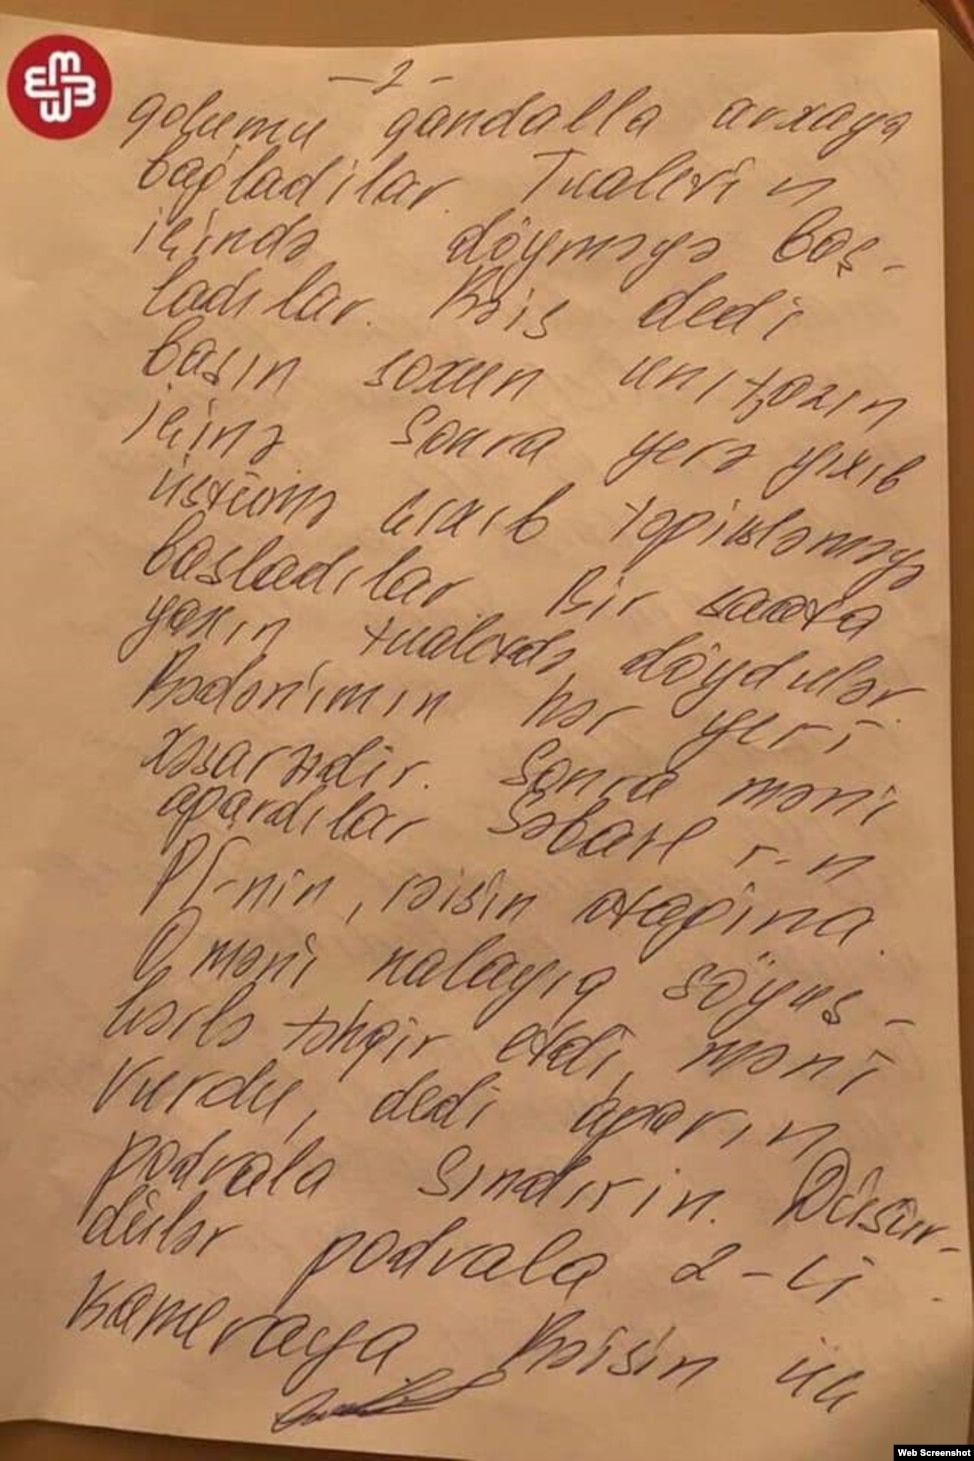 -2-
qolumu qandalla arxaya
bağladılar. Tualetin
içində döyməyə baş-
ladılar. Rəis dedi
başın soxun unitazın
içinə sonra yerə yıxıb
üstümə çıxıb təpikləməyə
başladılar Bir saata
yaxın tualetdə döydülər
Bədənimin hər yeri
xəsarətdir. Sonra məni
apardılar Səbail r-n
Pİ-nin, rəisin otağına.
O məni nalayıq söyüş-
lərlə təhqir etdi, məni
vurdu, dedi aparın
podvala sındırın. Düşür-
dülər podvala 2-ci
kameraya Rəisin üç
Web Screenshot